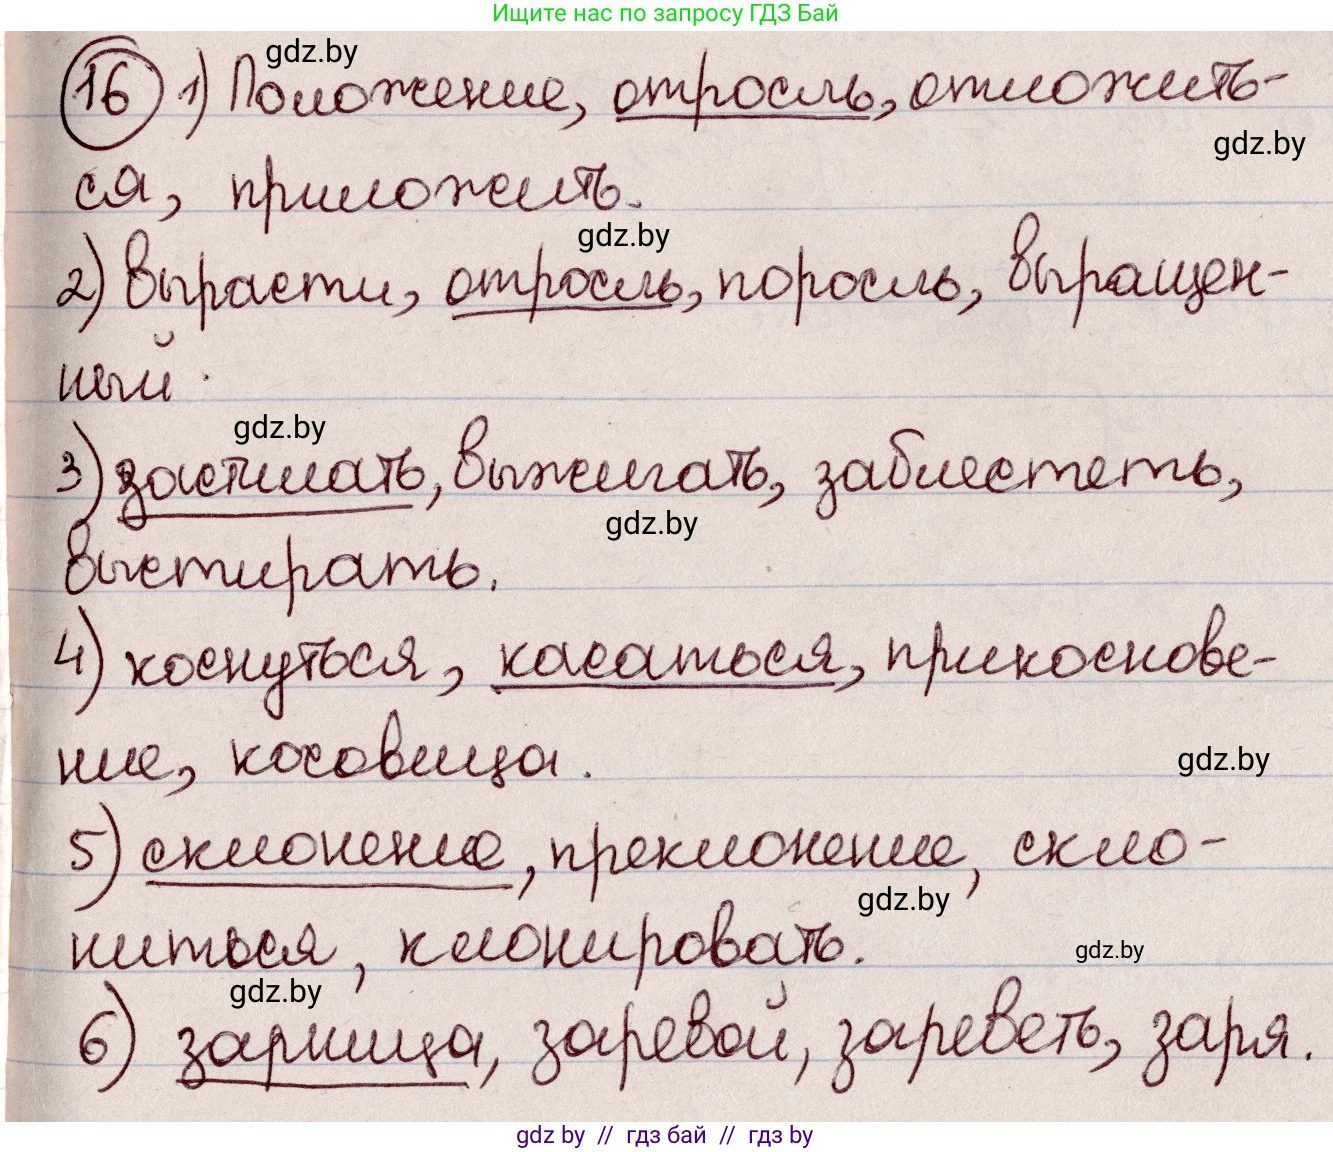 Ищите нас по запросу ГДЗ Бай
gdz.by
16 1) Положение, отросль, отложить-
gdz.by
ся, приложить.
gdz.by
2) вырасти, отросль, поросль, выращен-
ный.
gdz.by
3) застилать, выжигать, заблестеть,
gdz.by
выстирать.
4) коснуться, касаться, прикоснове-
ние, косовица.
gdz.by
5) склонение, преклонение, скло-
gdz.by
ниться, клонировать.
gdz.by
gdz.by
6) зарница, заревой, зареветь, заря.
gdz by // гдз бай // гдз by